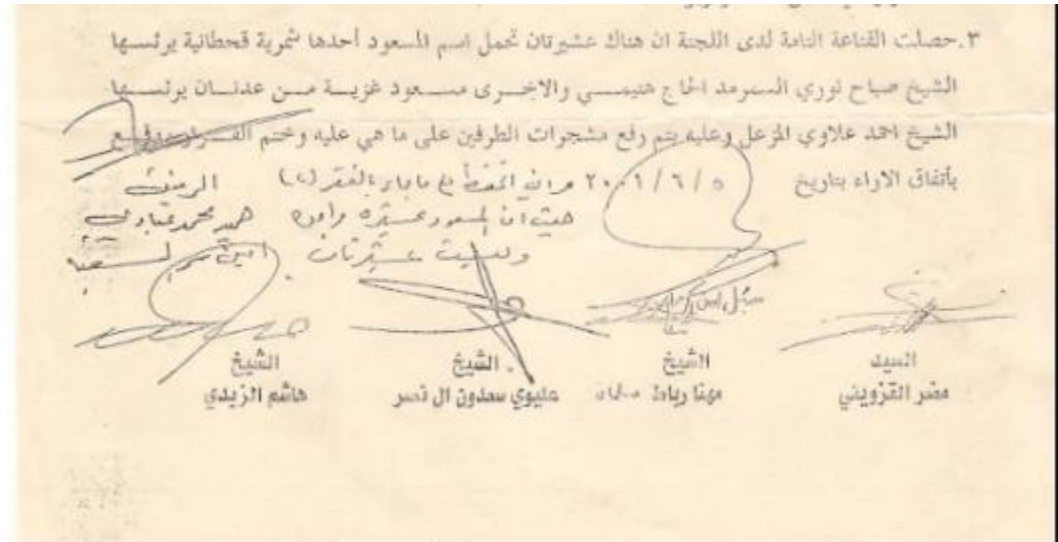 ٣.حصلت القناعة التامة لدى اللجنة ان هناك عشيرتان تحمل اسم المسعود أحدها شمرية قحطانية يرئسها
الشيخ صباح نوري السمرمد الحاج هتيمي والاخرى مسعود غزية من عدنان يرئسها
الشيخ احمد علاوي المزعل وعليه يتم رفع مشجرات الطرفين على ما هي عليه وختم القرار ووقع
بأتفاق الاراء بتاريخ ٢٠٠١/٦/٥ بالفقرة
حيث ان المسعود عشيرة واحدة
وليست عشيرتان
السيد الشيخ الشيخ الشيخ
مضر القزويني مهنا رباط سلمان عليوي سعدون ال نصر هاشم الزيدي